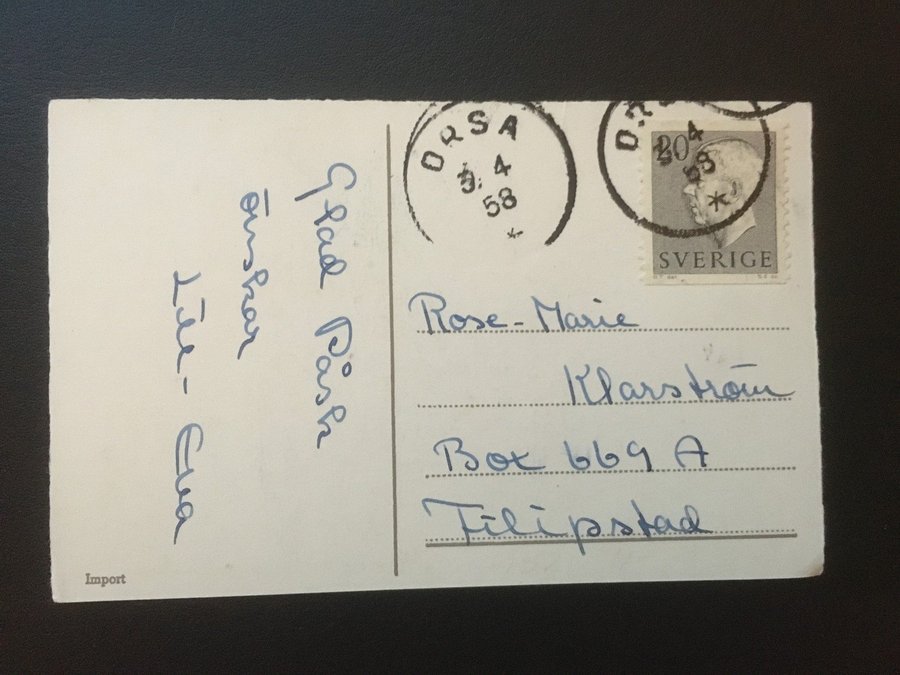 Glad Påsk
önskar
Lill-Eva
Import
ORSA
4
58
ORSA
4
58
20
SVERIGE
Rose-Marie
Klarström
Box 669 A
Filipstad